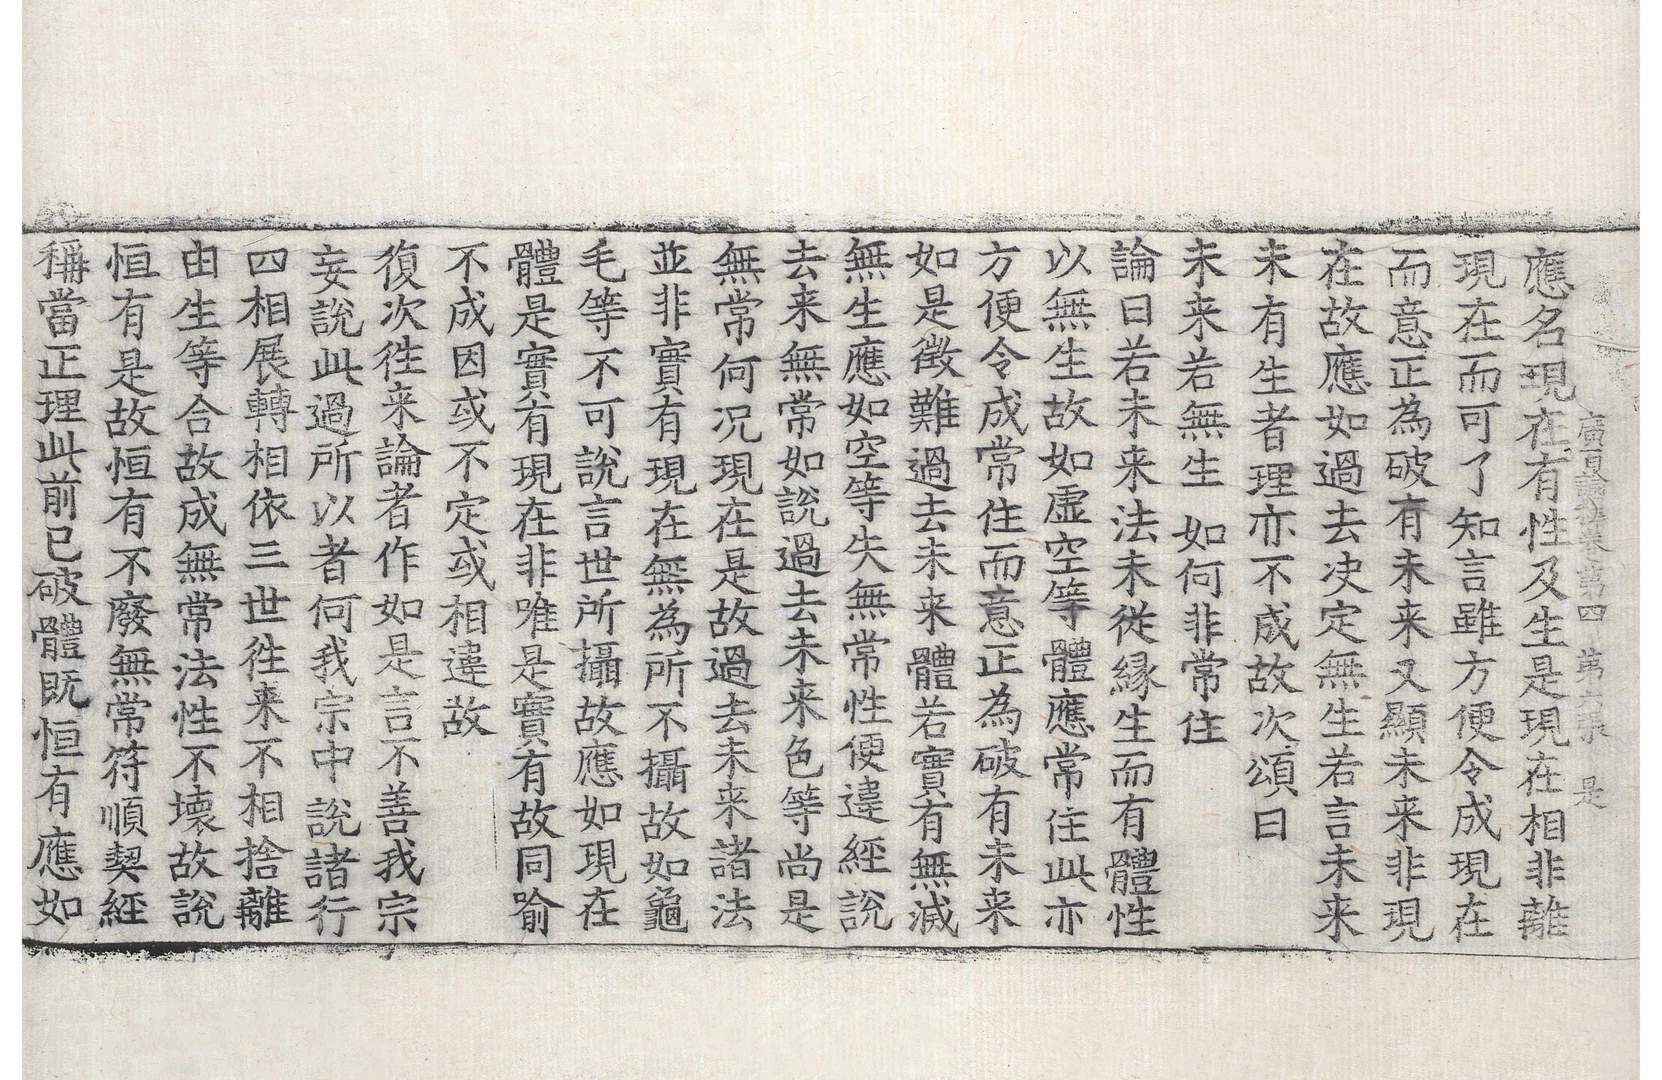 廣百論釋卷第四 第六張 是
應名現在有性及生是現在相非離
現在而可了知言雖方便令成現在
而意正為破有未来又顯未来非現
在故應如過去決定無生若言未来
未有生者理亦不成故次頌曰
未来若無生 如何非常住
論曰若未来法未從緣生而有體性
以無生故如虛空等體應常住此亦
方便令成常住而意正為破有未来
如是徵難過去未来體若實有無滅
無生應如空等失無常性便違經說
去来無常如說過去未来色等尚是
無常何況現在是故過去未来諸法
並非實有現在無為所不攝故如龜
毛等不可說言世所攝故應如現在
體是實有現在非唯是實有故同喻
不成因或不定或相違故
復次徃来論者作如是言不善我宗
妄說此過所以者何我宗中說諸行
四相展轉相依三世徃来不相捨離
由生等合故成無常法性不壞故說
恒有是故恒有不廢無常符順契經
稱當正理此前已破體既恒有應如